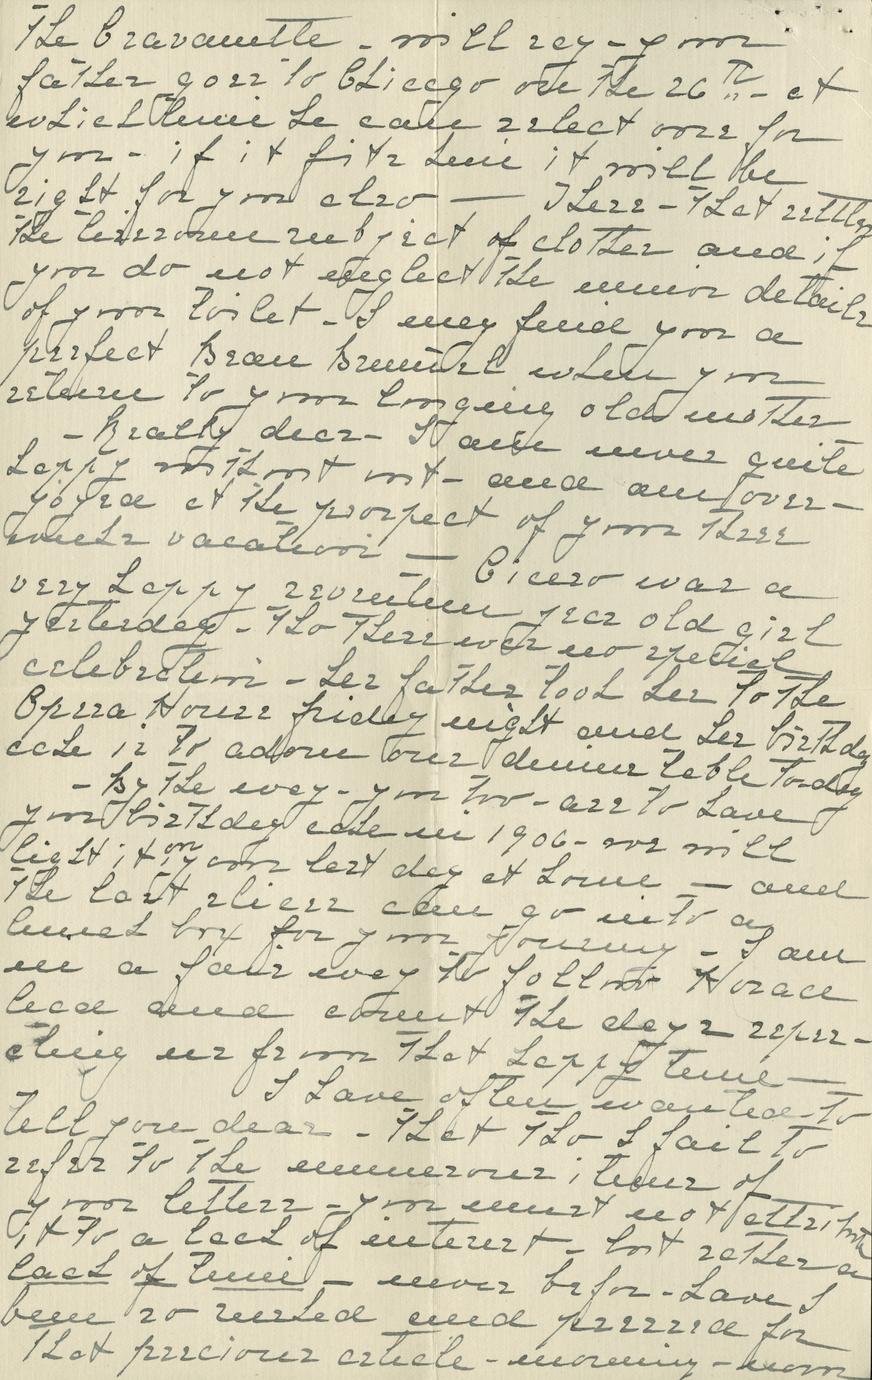 The Cravanette - will say - your
father goes to Chicago on the 26th - at
which time he can select one for
you - if it fits him it will be
right for you also — There - that settles
the tiresome subject of clothes and if
you do not neglect the minor details
of your toilet - I may find you a
perfect Beau Brummel when you
return to your longing old mother
- Really dear - I am never quite
happy without you - and am over-
joyed at the prospect of your three
weeks vacation — Cicero was a
very happy seventeen year old girl
yesterday - tho there was no special
celebration - her father took her to the
Opera House friday night and her birthday
cake is to adorn our dinner table to-day
- By the way - you too - are to have
your birthday cake in 1906 - we will
light it on your last day at home — and
the last slices can go into a
lunch box for your journey - I am
in a fair way to follow Horace
lead and count the days sepera-
ting us from that happy time —
I have often wanted to
tell you dear - that tho I fail to
refer to the numerous items of
your letters - you must not attribute
it to a lack of interest - but rather a
lack of time - never before - have I
been so rushed and pressed for
that precious article - morning - noon